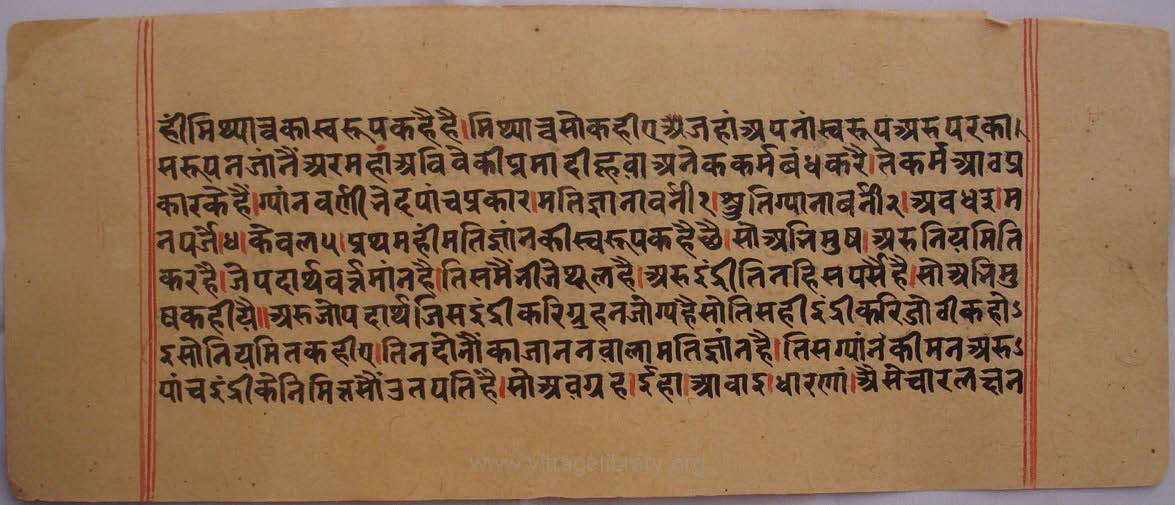 हीमिथ्यात्वकास्वरूपकहैहै।मिथ्यात्वसोकहीएअजहांअपनांस्वरूपअरुपरका।
सरूपनजांनैंअरमहांअविवेकीप्रमादीहूवाअनेककर्मबंधकरै।तेकर्मआवप्र
कारकेहैं।ग्यांनवर्णीनेदपांचप्रकार।मतिज्ञानावर्नी१।स्रुतिग्यानावर्नी२।अवधइ।म
नपर्जै।४।केवल५।प्रथमहीमतिज्ञांनकीस्वरूपकहैछै।सोअभिमुष।अरुनियमिति
करहै।जेपदार्थवर्त्तमांनहै।तिसमैंनीजेथूलहै।अरुइंद्रीतिनहिसपर्सैहै।सोअभिमु
षकहीयै॥अरुजोपदार्थजिसइंद्रीकरिग्रहनजोग्यहैसोतिसहीइंद्रीकरिजोवीकहोऽ
इसोनियमितकहीए।तिनदोनौंकाजाननवालामतिज्ञांनहै।तिसग्यांनकीमनअरुऽ
पांचइंद्रीकेनिमित्तसौंउतपतिहै।सोअवग्रह।ईहा।आवाइ।धारणां।अैसेचारलछन
www.vitragelibrary.org